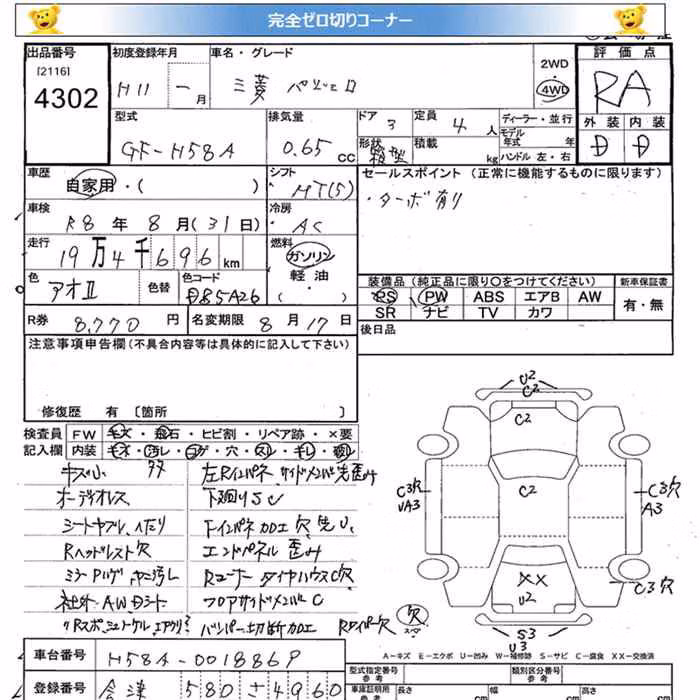 完全ゼロ切りコーナー
出品番号 初度登録年月 車名・グレード 2WD 評価点
[2116] H11 一月 三菱 パジェロ 4WD RA
4302
型式 排気量 ドア 3 定員 4人 ディーラー・並行 外装 内装
GF-H58A 0.65cc 形状 箱型 積載 kg モデル年式 年 D D
ハンドル 左・右
車歴 シフト セールスポイント (正常に機能するものに限ります)
自家用・( ) MT(5) ・ターボ有り
車検 冷房
R8年8月(31日) AC
走行 燃料
19万4千696km ガソリン
軽油
( )
色 色替 色コード
アオⅡ D85A26
装備品 (純正品に限り○をつけてください) 新車保証書
PS PW ABS エアB AW 有・無
SR ナビ TV カワ
R券 8,770円 名変期限 8月17日 後日品
注意事項申告欄(不具合内容等は具体的に記入して下さい)
修復歴 有 〔箇所 〕
検査員 FW キズ・飛石・ヒビ割・リペア跡・×要
記入欄 内装 キオ・汚レ・コゲ・穴・スレ・キレ・
キズ小 左Rインパネ、サイドメンバ先歪み
オーディオレス 下廻りSC
シートヤブレ、ヘタリ Fインパネ加工穴先U、
Rヘッドレスト欠 エンドパネル歪み
ミラーPハゲ ヤニ汚レ Rコーナー タイヤハウスC穴
社外AW フロアサイドメンバーC
バンパー切断加工 Rワイパー欠
欠
U2
C2
C2
C2
C3穴
UA3
C3穴
A3
XX
U2
C3穴
S3
U3
A－キズ E－エクボ U－凹み W－補修跡 S－サビ C－腐食 XX－交換済
車台番号 H58A-0018869
登録番号 会津 580 さ 4960
型式指定番号 参考 類別区分番号 参考
車庫証明用 参考 長さ cm 幅 cm 高さ cm